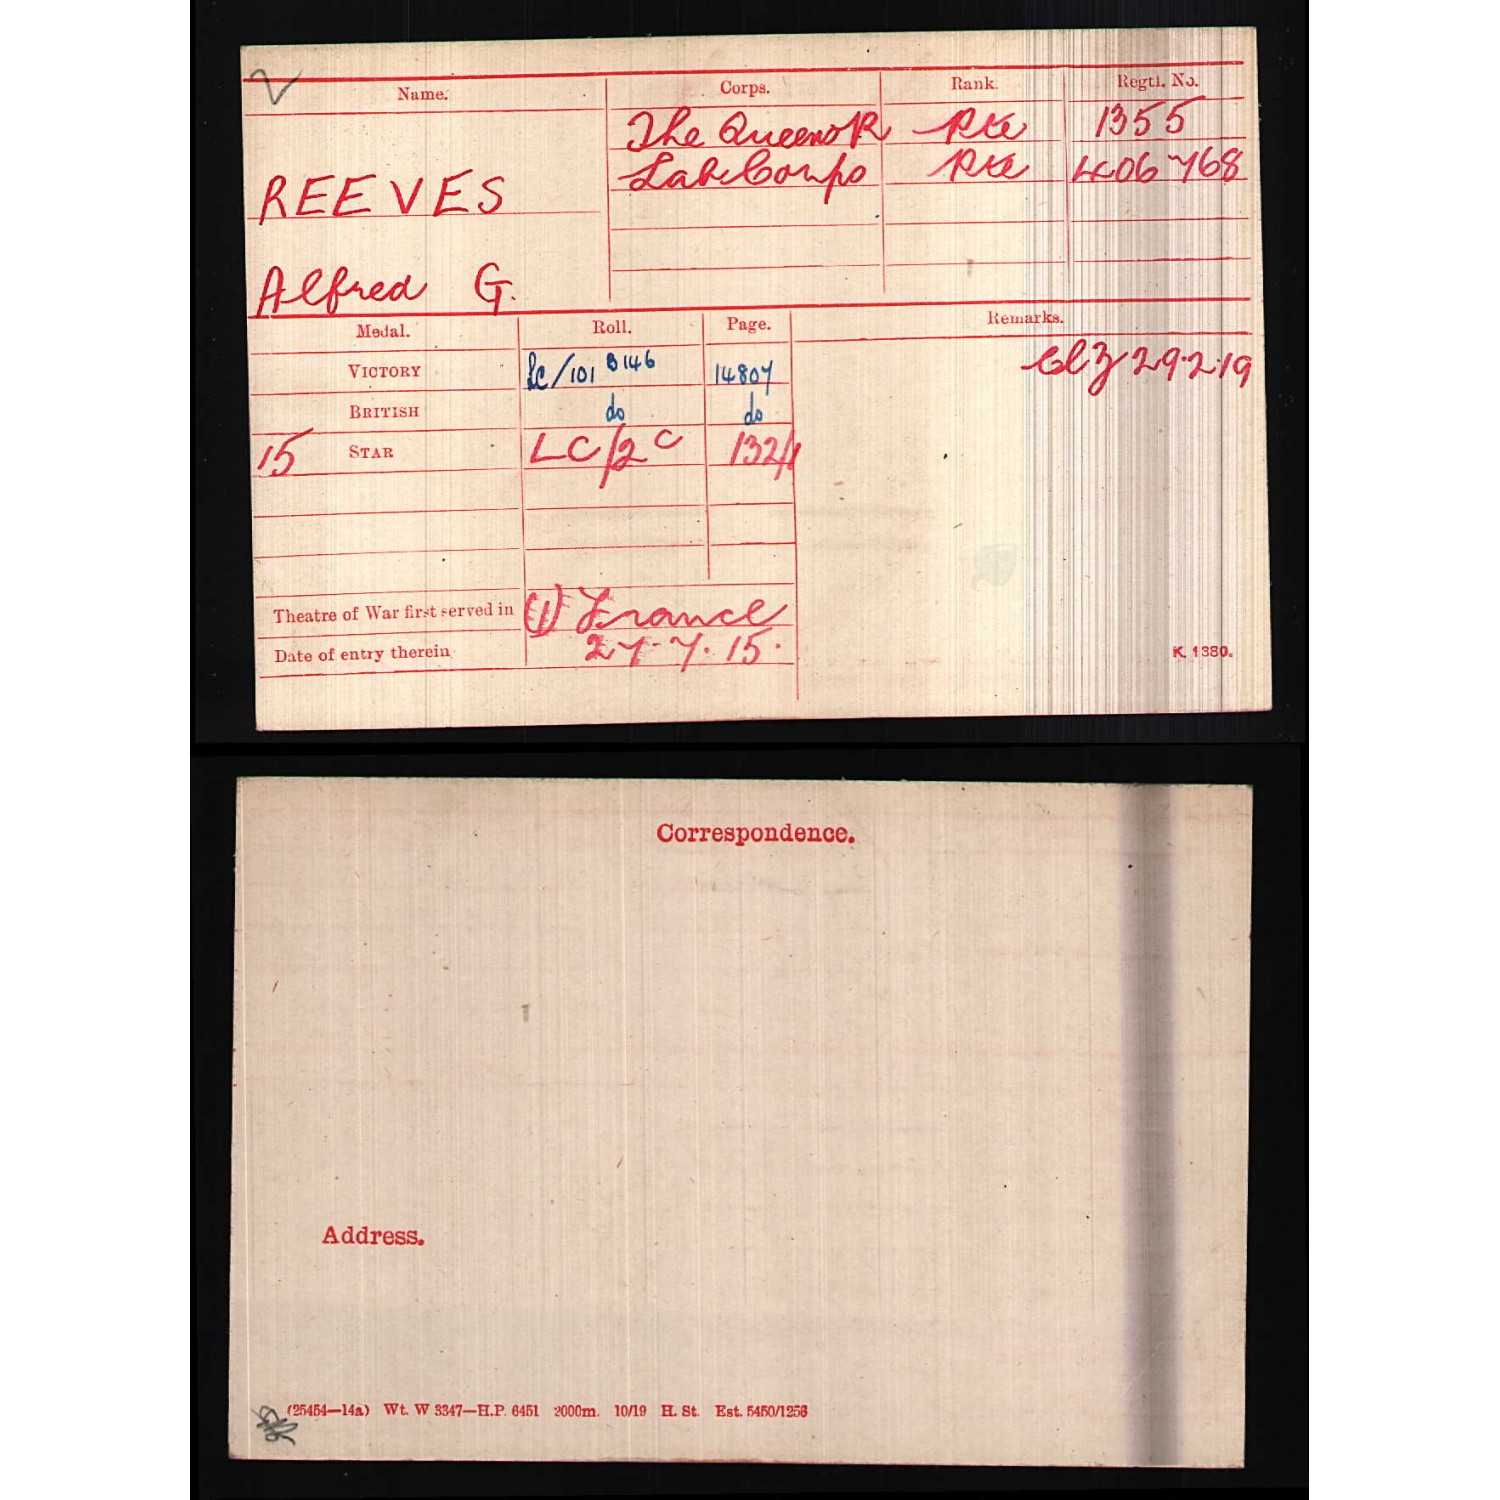 Name. Corps. Rank. Regtl. No.
The Queens R Pte 1355
Lab Corps Pte 406768
REEVES
Alfred G.
Medal. Roll. Page. Remarks.
VICTORY LC/101 B146 14807 Cl Z 29.2.19
BRITISH do do
15 STAR LC/2C 132/1
Theatre of War first served in (1) France
Date of entry therein 27.7.15.
K. 1380.
Correspondence.
Address.
(25454—14a) Wt. W 3347—H.P. 6451 2000m. 10/19 H. St. Est. 5450/1256